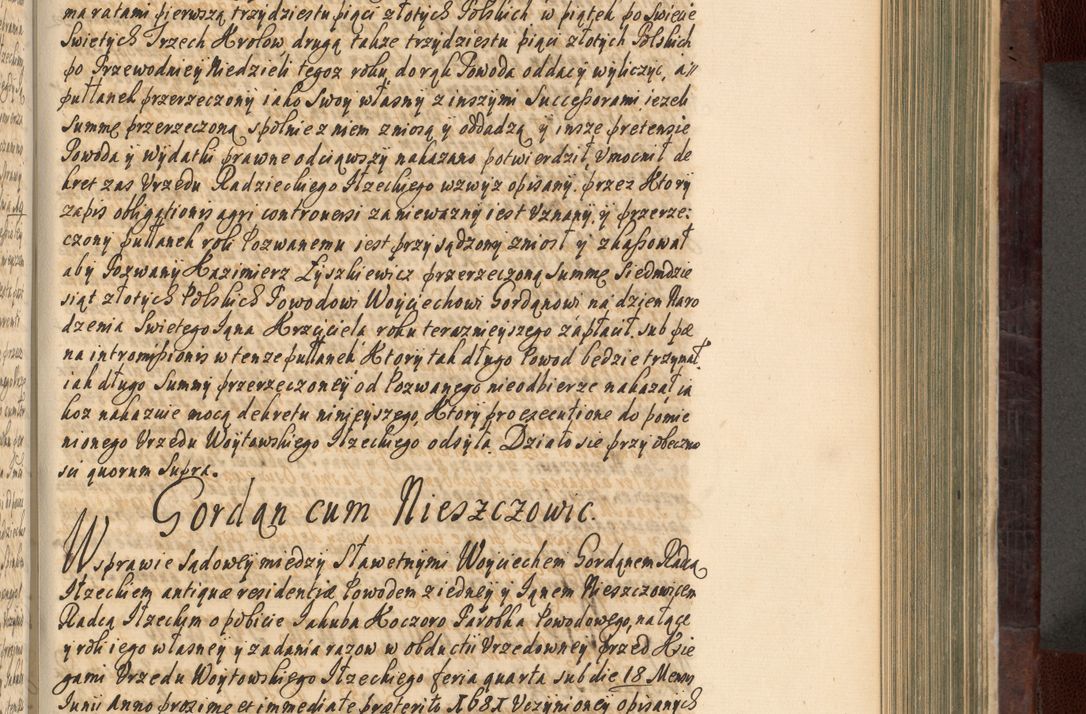 ma ratami pierwszą trzydziestu piąci złotych Polskich w piątek po Swięcie
Swiętych Trzech Krolow, drugą także trzydziestu piąci złotych Polskich
po Przewodniey Niedzieli tegoż roku, do rąk Powoda oddacy wyliczyć, a//
pułłanek przerzeczony iako swoy własny z inszymi Successorami ieżeli
Summę przerzeczoną spolnie z niem zniosą y oddadzą, y insze pretensie
Powoda y wydatki prawne odciąwszy nakazano potwierdził, Vmocnił de
kret zas Vrzędu Radzieckiego Iłzeckiego wzwyz opisany, przez Ktory
zapis obligationis agri controuersi za niewazny iest Vznany, y przerze:
czony pułłanek roli Pozwanemu iest przysądzony zniosł y zkassował
aby Pozwany Kazimierz Łyszkiewicz przerzeczoną Summę Siedmdzie
siąt złotych Polskich Powodowi Woyciechowi Gordąnowi na dzien Naro
dzenia Swietego Iąna Krzciciela roku terazniejszego zapłacił sub pæ
na intromissionis w tenze pułłanek Ktory tak długo Powod będzie trzymał
iak długo Summy przerzeczoney od Pozwanego nieodbierze nakazał ia
koz nakazuie mocą dekretu ninieyszego, Ktory pro executione do pomie
nionego Vrzędu Woytowskiego Iłzeckiego odsyła. Działo sie przy obecno
sci quorum supra.
Gordąn cum Nieszczowic.
W sprawie sądowey między Sławetnymi Woyciechem Gordąnem Radcą
Iłzeckiem antiquæ residentiæ Powodem z iedney y Iąnem Nieszczowicem
Radcą Iłzeckim o pobicie Iakuba Koczoro Parobka Powodowego, na łące
y roli iego własney y zadania razow w obductii Vrzędowney przed Xię
gami Vrzedu Woytowskiego Iłzeckiego feria quarta sub die 18 Mensis
Iunii Anno proxime et immediate præterito 1681 Vczynioney opisanych